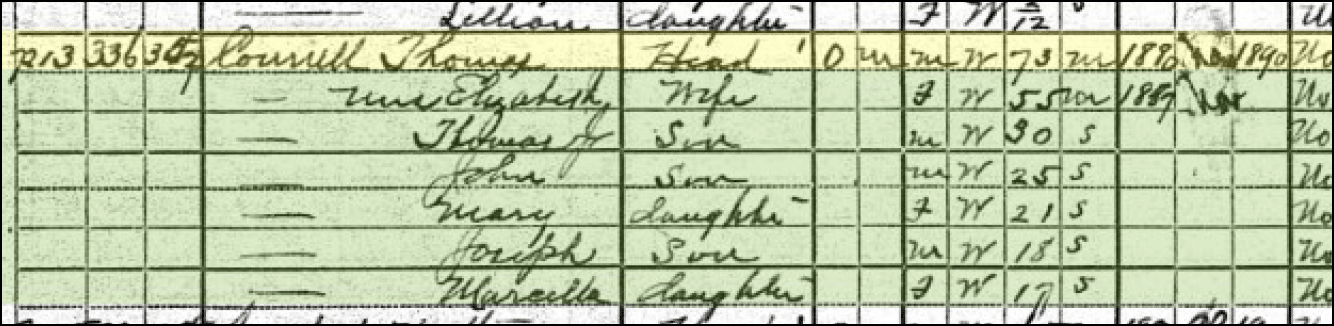 Lillian daughter F W 2/12 S
713 336 357 Connell Thomas Head O M M W 73 M 1880 Na 1890 No
— Mrs Elizabeth Wife F W 55 M 1887 Na No
— Thomas Jr Son M W 30 S No
— John Son M W 25 S No
— Mary daughter F W 21 S No
— Joseph Son M W 18 S No
— Marcella daughter F W 17 S No